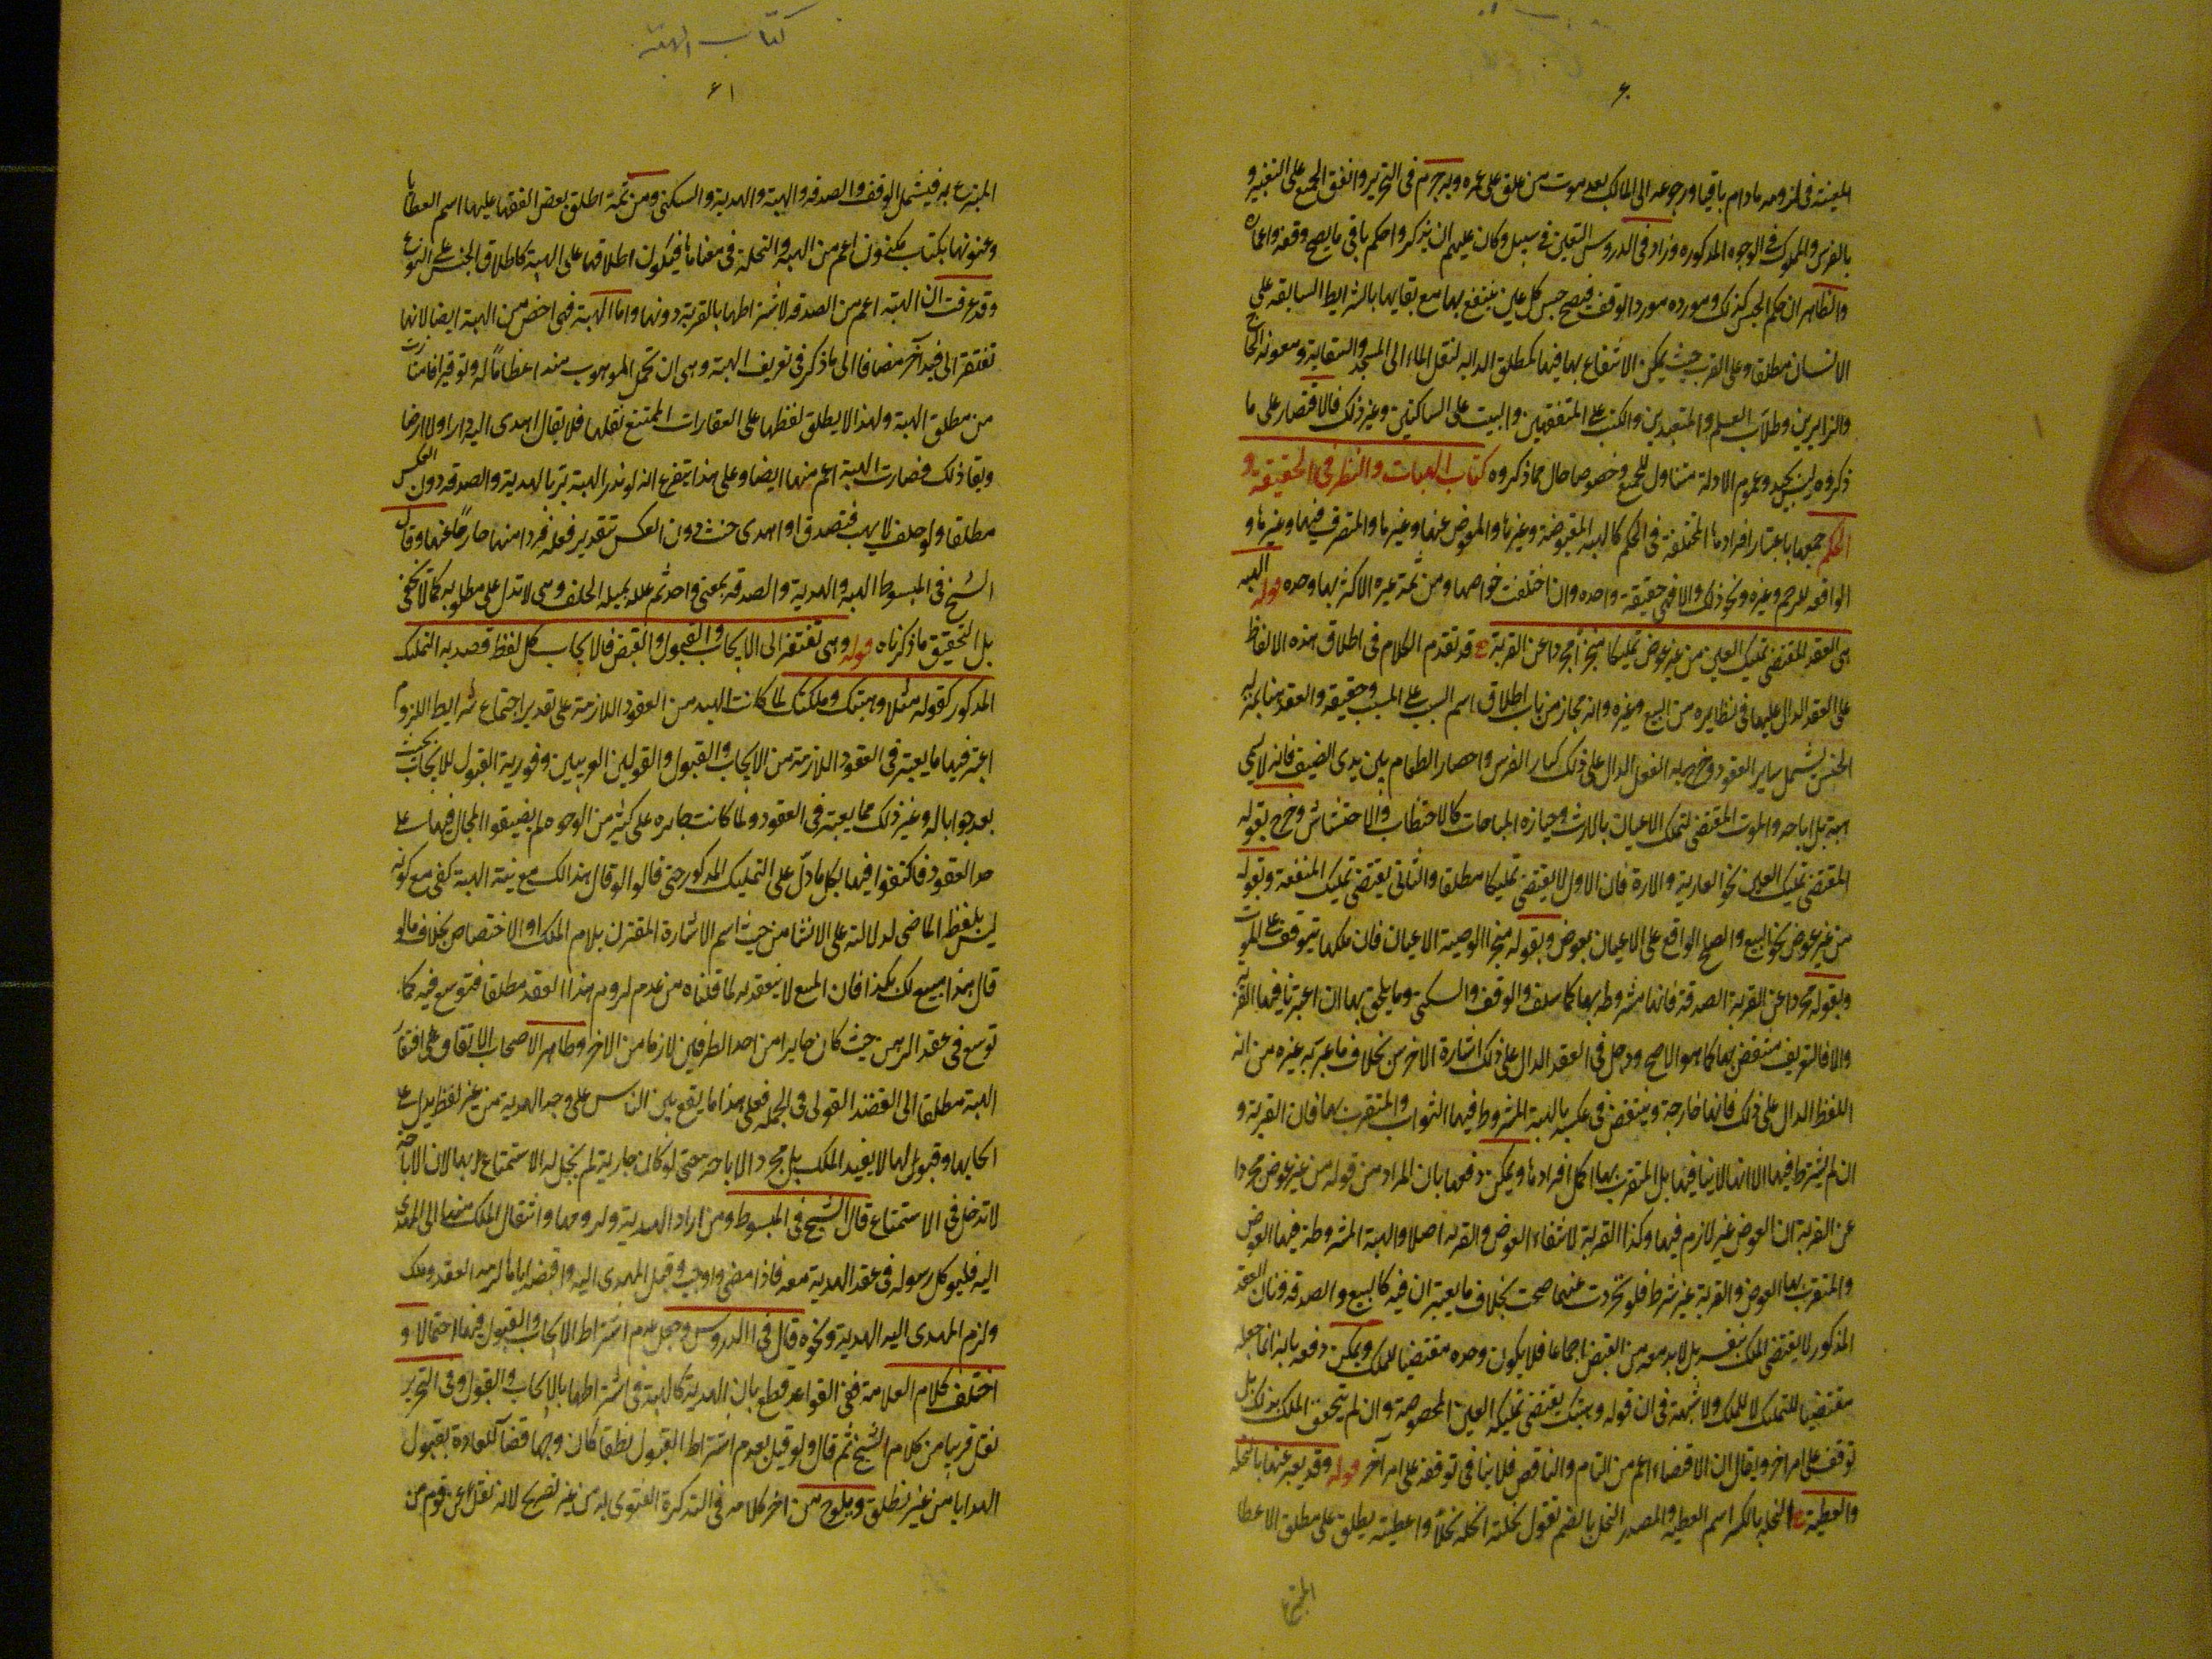 ٦٠
المعينة في لزومه مادام باقيا ورجوعه الى المالك بعد موت من علق على عمره وبه جزم في التحرير واتفق الجميع على التعبير و
بالفرس والمملوك في الوجوه المذكورة وزاد في الدروس البعير في سبيل وكان عليهم ان يذكروا حكم باقي ما يصح وقفه واعماره
والظاهر ان حكم الحبس كذلك ومورده مورد الوقف فيصح حبس كل عين ينتفع بها مع بقائها بالشرايط السابقة على
الانسان مطلقا وعلى القرب حيث يمكن الانتفاع بها فيها كمطلق الدابه لنقل الماء الى المسجد والسقاية ومعونة الحاج
والزايرين وطلاب العلم والمتعبدين والكتب على المتفقهين والبيت على الساكنين وغير ذلك فالاقتصار على ما
ذكروه ليس بجيد وعموم الادلة متناول للجميع وخصوصا حال مما ذكروه كتاب الهبات والنظر في الحقيقة و
الحكم جمعها باعتبار افرادها المختلفة في الحكم كالهبة المقبوضة وغيرها والمعوض عنها وغيرها والمتصرف فيها وغيرها و
الواقعه للرحم وغيره ونحو ذلك والا فهي حقيقة واحده وان اختلفت خواصها ومن ثم عبر الاكثر بها وحده قوله الهبه
هي العقد المقتضي تمليك العين من غير عوض تمليكا منجزا مجردا عن القربة قد تقدم الكلام في اطلاق هذه الالفاظ
على العقد الدال عليها في نظايره من البيع وغيره وانه مجاز من باب اطلاق اسم السبب على المسبب وحقيقة والعقد هنا بمنزلة
الجنس يشمل ساير العقود وخرج به الفعل الدال على ذلك كنثار العرس واحضار الطعام بين يدي الضيف فانه لا يسمى
هبة بل اباحه والموت المقتضي لتملك الاعيان بالارث وحيازة المباحات كالاحتطاب والاحتشاش وخرج بقوله
المقتضي تمليك العين نحو العارية والاجارة فان الاول لا يقتضي تمليكا مطلقا والثاني يقتضي تمليك المنفعة وبقوله
من غير عوض نحو البيع والصلح الواقع على الاعيان بعوض وبقوله منجزا الوصية الاعيان فان ملكها يتوقف على الموت
وبقوله مجردا عن القربة الصدقة فانها مشروطة بها كما سلف والوقف والسكنى وما يلحق بها ان اعتبرنا فيها القربة
والا فالتعريف منتقض بهما كما هو الاصح ودخل في العقد الدال على ذلك اشارة الاخرس بخلاف ما عبر به غيره من انه
اللفظ الدال على ذلك فانها خارجة وينتقض في عكسه بالهبة المشروط فيها الثواب والمتقرب بها فان القربة و
ان لم يشترط فيها الا انها لا ينافيها بل المتقرب بها اكمل افرادها ويمكن دفعها بان المراد من قوله من غير عوض مجردا
عن القربة ان العوض غير لازم فيها وكذا القربة لا نتفاء العوض والقربة اصلا والهبة المشروطة فيها العوض
والمتقرب بها العوض والقربة غير شرط فلو تجردت عنهما صحت بخلاف ما يعتبر ان فيه كالبيع والصدقة وبان العقد
المذكور لا يقتضي الملك بنفسه بل لابد معه من القبض اجماعا فلا يكون وحده مقتضيا للملك ويمكن دفعه بانه انما جعله
مقتضيا للتمليك لا للملك ولا شبهة في ان قوله وهبتك يقتضي تمليك العين المخصوصة وان لم يتحقق الملك بذلك بل
توقف على امر اخر ويقال ان الاقتضاء اعم من التام والناقص فلا ينافي توقفه على امر آخر قوله وقد يعبر عنها بالنحلة
والعطية النحله بالكسر اسم العطية والمصدر النحل بالضم تقول نحلته انحله نحلا واعطيته يطلق على مطلق الاعطا
المتبرع
كتاب الهبة
٦١
المتبرع به فيشمل الوقف والصدقة والهبة والهدية والسكنى ومن ثمة اطلق بعض الفقها عليها اسم العطايا
وعنونها بكتاب فيكون اعم من الهبة والنحلة في معناها فيكون اطلاقها على الهبة كاطلاق الجنس على النوع
وقد عرفت ان الهبة اعم من الصدقة لاشتراطها بالقربة دونها واما الهبة فهي اخص من الهبة ايضا لانها
تفتقر الى قيد آخر مضافا الى ما ذكر في تعريف الهبة وهي ان تحمل الموهوب منه اعظاما له وتوقيرا فامتازت
من مطلق الهبة ولهذا لا يطلق لفظها على العقارات الممتنع نقلها فلا يقال اهدى اليه دارا ولا ارضا
ويقا ذلك فصارت الهبة اعم منها ايضا وعلى هذا يتفرع انه لو نذر الهبة بر بالهدية والصدقة دون العكس
مطلقا ولو حلف لا يهب فتصدق او اهدى حنث دون العكس بتقدير فعله فردا منها خارجا عنهما وقال
الشيخ في المبسوط الهبة والهدية والصدقة بمعنى واحد ثم علله بمسئلة الحلف وهي لا تدل على مطلوبه كما لا يخفى
بل التحقيق ما ذكرناه قوله وهي تفتقر الى الايجاب والقبول والقبض فالايجاب كل لفظ قصد به التمليك
المذكور كقوله مثلا وهبتك وملكتك لما كانت الهبه من العقود اللازمة على تقدير اجتماع شرايط اللزوم
اعتبر فيها ما يعتبر في العقود اللازمة من الايجاب والقبول والقولين العربيين وفورية القبول للايجاب بحيث
يعد جوابا له وغير ذلك مما يعتبر في العقود ولما كانت جايزه على كثير من الوجوه لم يضيقوا المجال فيها على
حد العقود فاكتفوا فيها بكل ما دل على التمليك المذكور حتى قالوا لو قال هذا لك مع نية الهبة كفى مع كونه
ليس بلفظ الماضي لدلالته على الانشا من حيث اسم الاشارة المقترن بلام الملك او الاختصاص بخلاف ما لو
قال هذا مبيع لك بكذا فان المبيع لا ينعقد به لما قلناه من عدم لزوم هذا العقد مطلقا فتوسع فيه كما
توسع في عقد الرهن حيث كان جايزا من احد الطرفين لازما من الاخر وظاهر الاصحاب الاتفاق على افتقار
الهبة مطلقا الى العقد القولي في الجملة فعلى هذا ما يقع بين الناس على وجه الهدية من غير لفظ يدل على
ايجابها وقبولها لا يفيد الملك بل مجرد الاباحة حتى لو كان جارية لم يحل له الاستمتاع بها لان الاباحة
لا تدخل في الاستمتاع قال الشيخ في المبسوط ومن اراد الهدية ولزومها وانتقال الملك منها الى المهدى
اليه فليوكل رسوله في عقد الهدية معه فاذا مضى واوجب وقبل المهدى اليه واقبضه اياها لزم العقد وملك
ولزم المهدى اليه الهدية ونحوه قال في الدروس وجعل عدم اشتراط الايجاب والقبول فيها احتمالا و
اختلف كلام العلامة ففي القواعد قطع بان الهدية كالهبة في اشتراطها بالايجاب والقبول وفي التحرير
نقل قريبا من كلام الشيخ ثم قال ولو قيل بعدم اشتراط القبول نطقا كان وجها قضاء للعادة بقبول
الهدايا من غير نطق ويلوح من اخر كلامه في التذكرة الفتوى به من غير تصريح لانه نقل عن قوم من